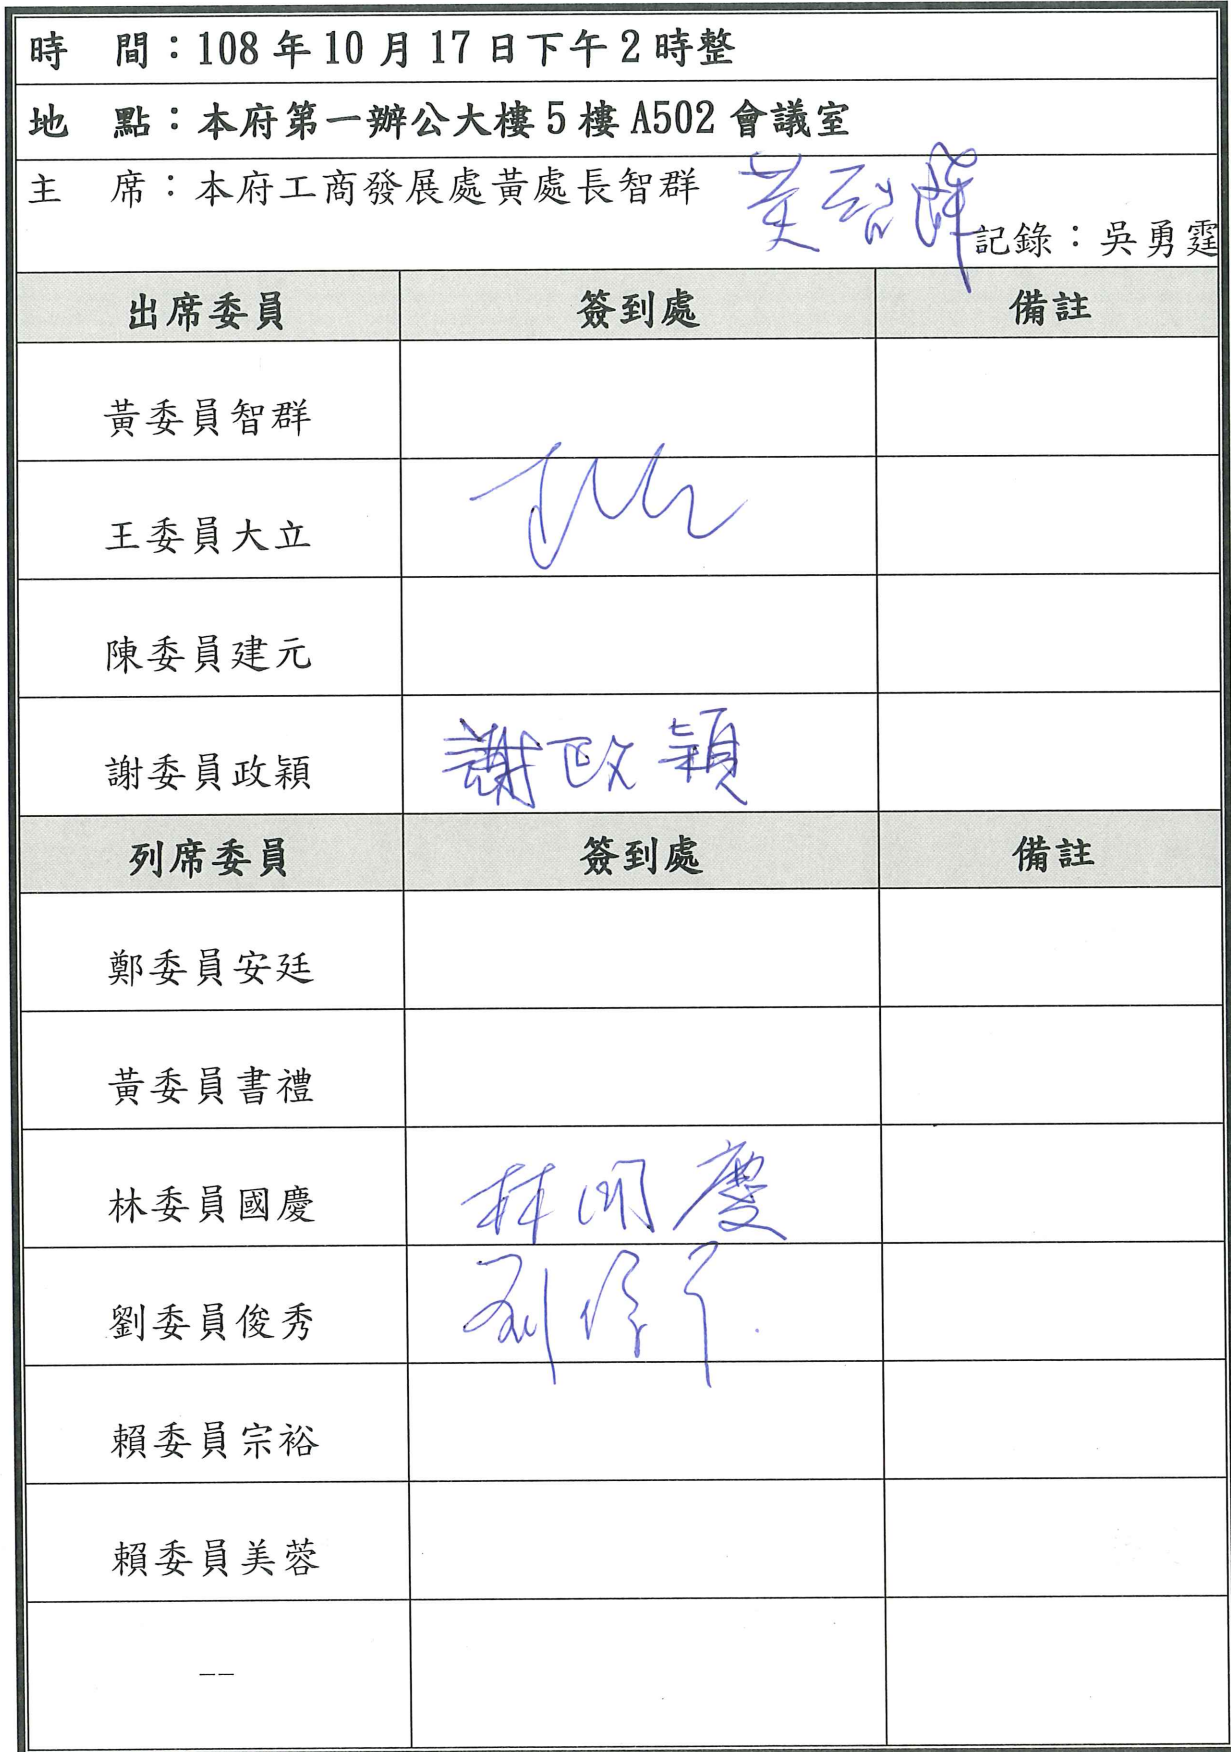 時　間：108 年 10 月 17 日下午 2 時整
地　點：本府第一辦公大樓 5 樓 A502 會議室
主　席：本府工商發展處黃處長智群 黃智群
記錄：吳勇霆
出席委員 簽到處 備註
黃委員智群
王委員大立
陳委員建元
謝委員政穎 謝政穎
列席委員 簽到處 備註
鄭委員安廷
黃委員書禮
林委員國慶 林国慶
劉委員俊秀
賴委員宗裕
賴委員美蓉
--